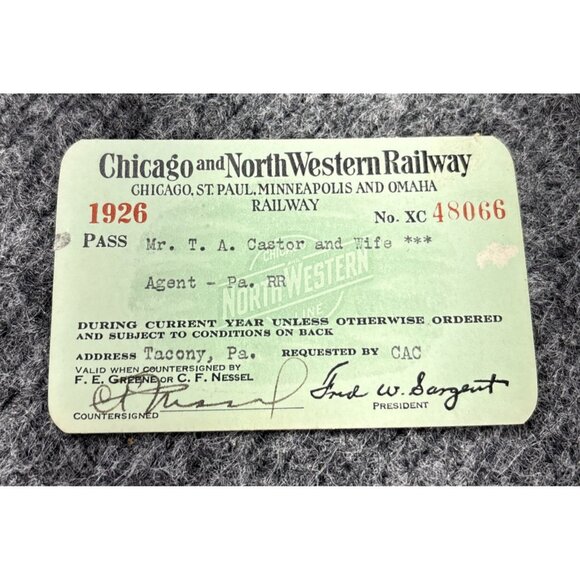 Chicago and North Western Railway
CHICAGO, ST. PAUL, MINNEAPOLIS AND OMAHA
RAILWAY
1926 No. XC 48066
PASS Mr. T. A. Castor and Wife ***
Agent - Pa. RR
CHICAGO
NORTH WESTERN
LINE
DURING CURRENT YEAR UNLESS OTHERWISE ORDERED
AND SUBJECT TO CONDITIONS ON BACK
ADDRESS Tacony, Pa. REQUESTED BY CAC
VALID WHEN COUNTERSIGNED BY
F. E. GREENE OR C. F. NESSEL
C F Nessel Fred W. Sargent
COUNTERSIGNED PRESIDENT